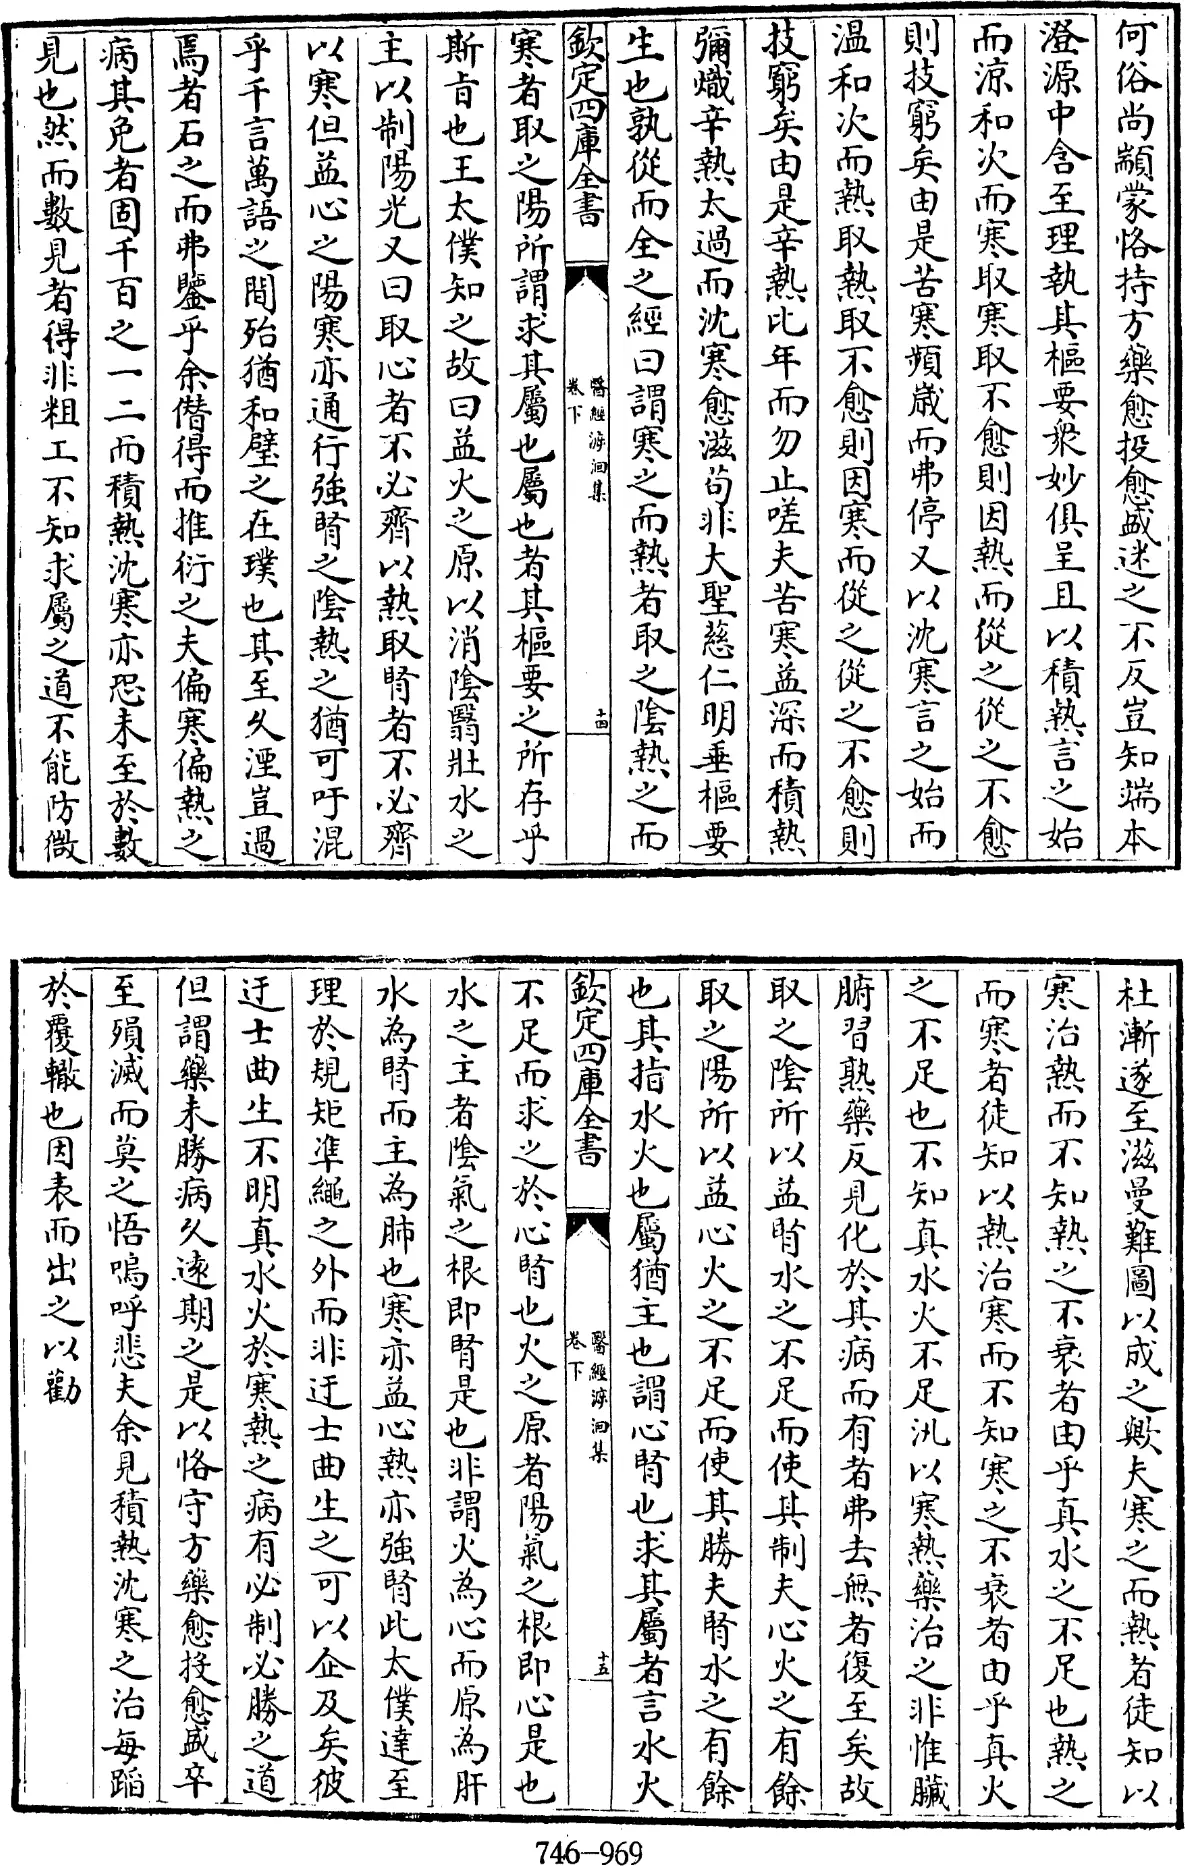 何俗尚顓蒙恪持方藥愈投愈盛迷之不反豈知端本
澄源中含至理執其樞要衆妙俱呈且以積熱言之始
而凉和次而寒取寒取不愈則因熱而從之從之不愈
則技窮矣由是苦寒頻歲而弗停又以沈寒言之始而
温和次而熱取熱取不愈則因寒而從之從之不愈則
技窮矣由是辛熱比年而勿止嗟夫苦寒益深而積熱
彌熾辛熱太過而沈寒愈滋苟非大聖慈仁明垂樞要
生也孰從而全之經曰謂寒之而熱者取之陰熱之而
欽定四庫全書
醫經溯洄集
卷下
十四
寒者取之陽所謂求其屬也屬也者其樞要之所存乎
斯旨也王太僕知之故曰益火之原以消陰翳壯水之
主以制陽光又曰取心者不必齊以熱取腎者不必齊
以寒但益心之陽寒亦通行強腎之陰熱之猶可吁混
乎千言萬語之間殆猶和璧之在璞也其至久湮豈過
焉者石之而弗鑒乎余僭得而推衍之夫偏寒偏熱之
病其免者固千百之一二而積熱沈寒亦恐未至於數
見也然而數見者得非粗工不知求屬之道不能防微
杜漸遂至滋曼難圖以成之歟夫寒之而熱者徒知以
寒治熱而不知熱之不衰者由乎真水之不足也熱之
而寒者徒知以熱治寒而不知寒之不衰者由乎真火
之不足也不知真水火不足汎以寒熱藥治之非惟臟
腑習熟藥反見化於其病而有者弗去無者復至矣故
取之陰所以益腎水之不足而使其制夫心火之有餘
取之陽所以益心火之不足而使其勝夫腎水之有餘
也其指水火也屬猶主也謂心腎也求其屬者言水火
欽定四庫全書
醫經溯洄集
卷下
十五
不足而求之於心腎也火之原者陽氣之根即心是也
水之主者陰氣之根即腎是也非謂火為心而原為肝
水為腎而主為肺也寒亦益心熱亦強腎此太僕達至
理於規矩準繩之外而非迂士曲生之可以企及矣彼
迂士曲生不明真水火於寒熱之病有必制必勝之道
但謂藥未勝病久遠期之是以恪守方藥愈投愈盛卒
至殞滅而莫之悟嗚呼悲夫余見積熱沈寒之治每蹈
於覆轍也因表而出之以勸
746-969